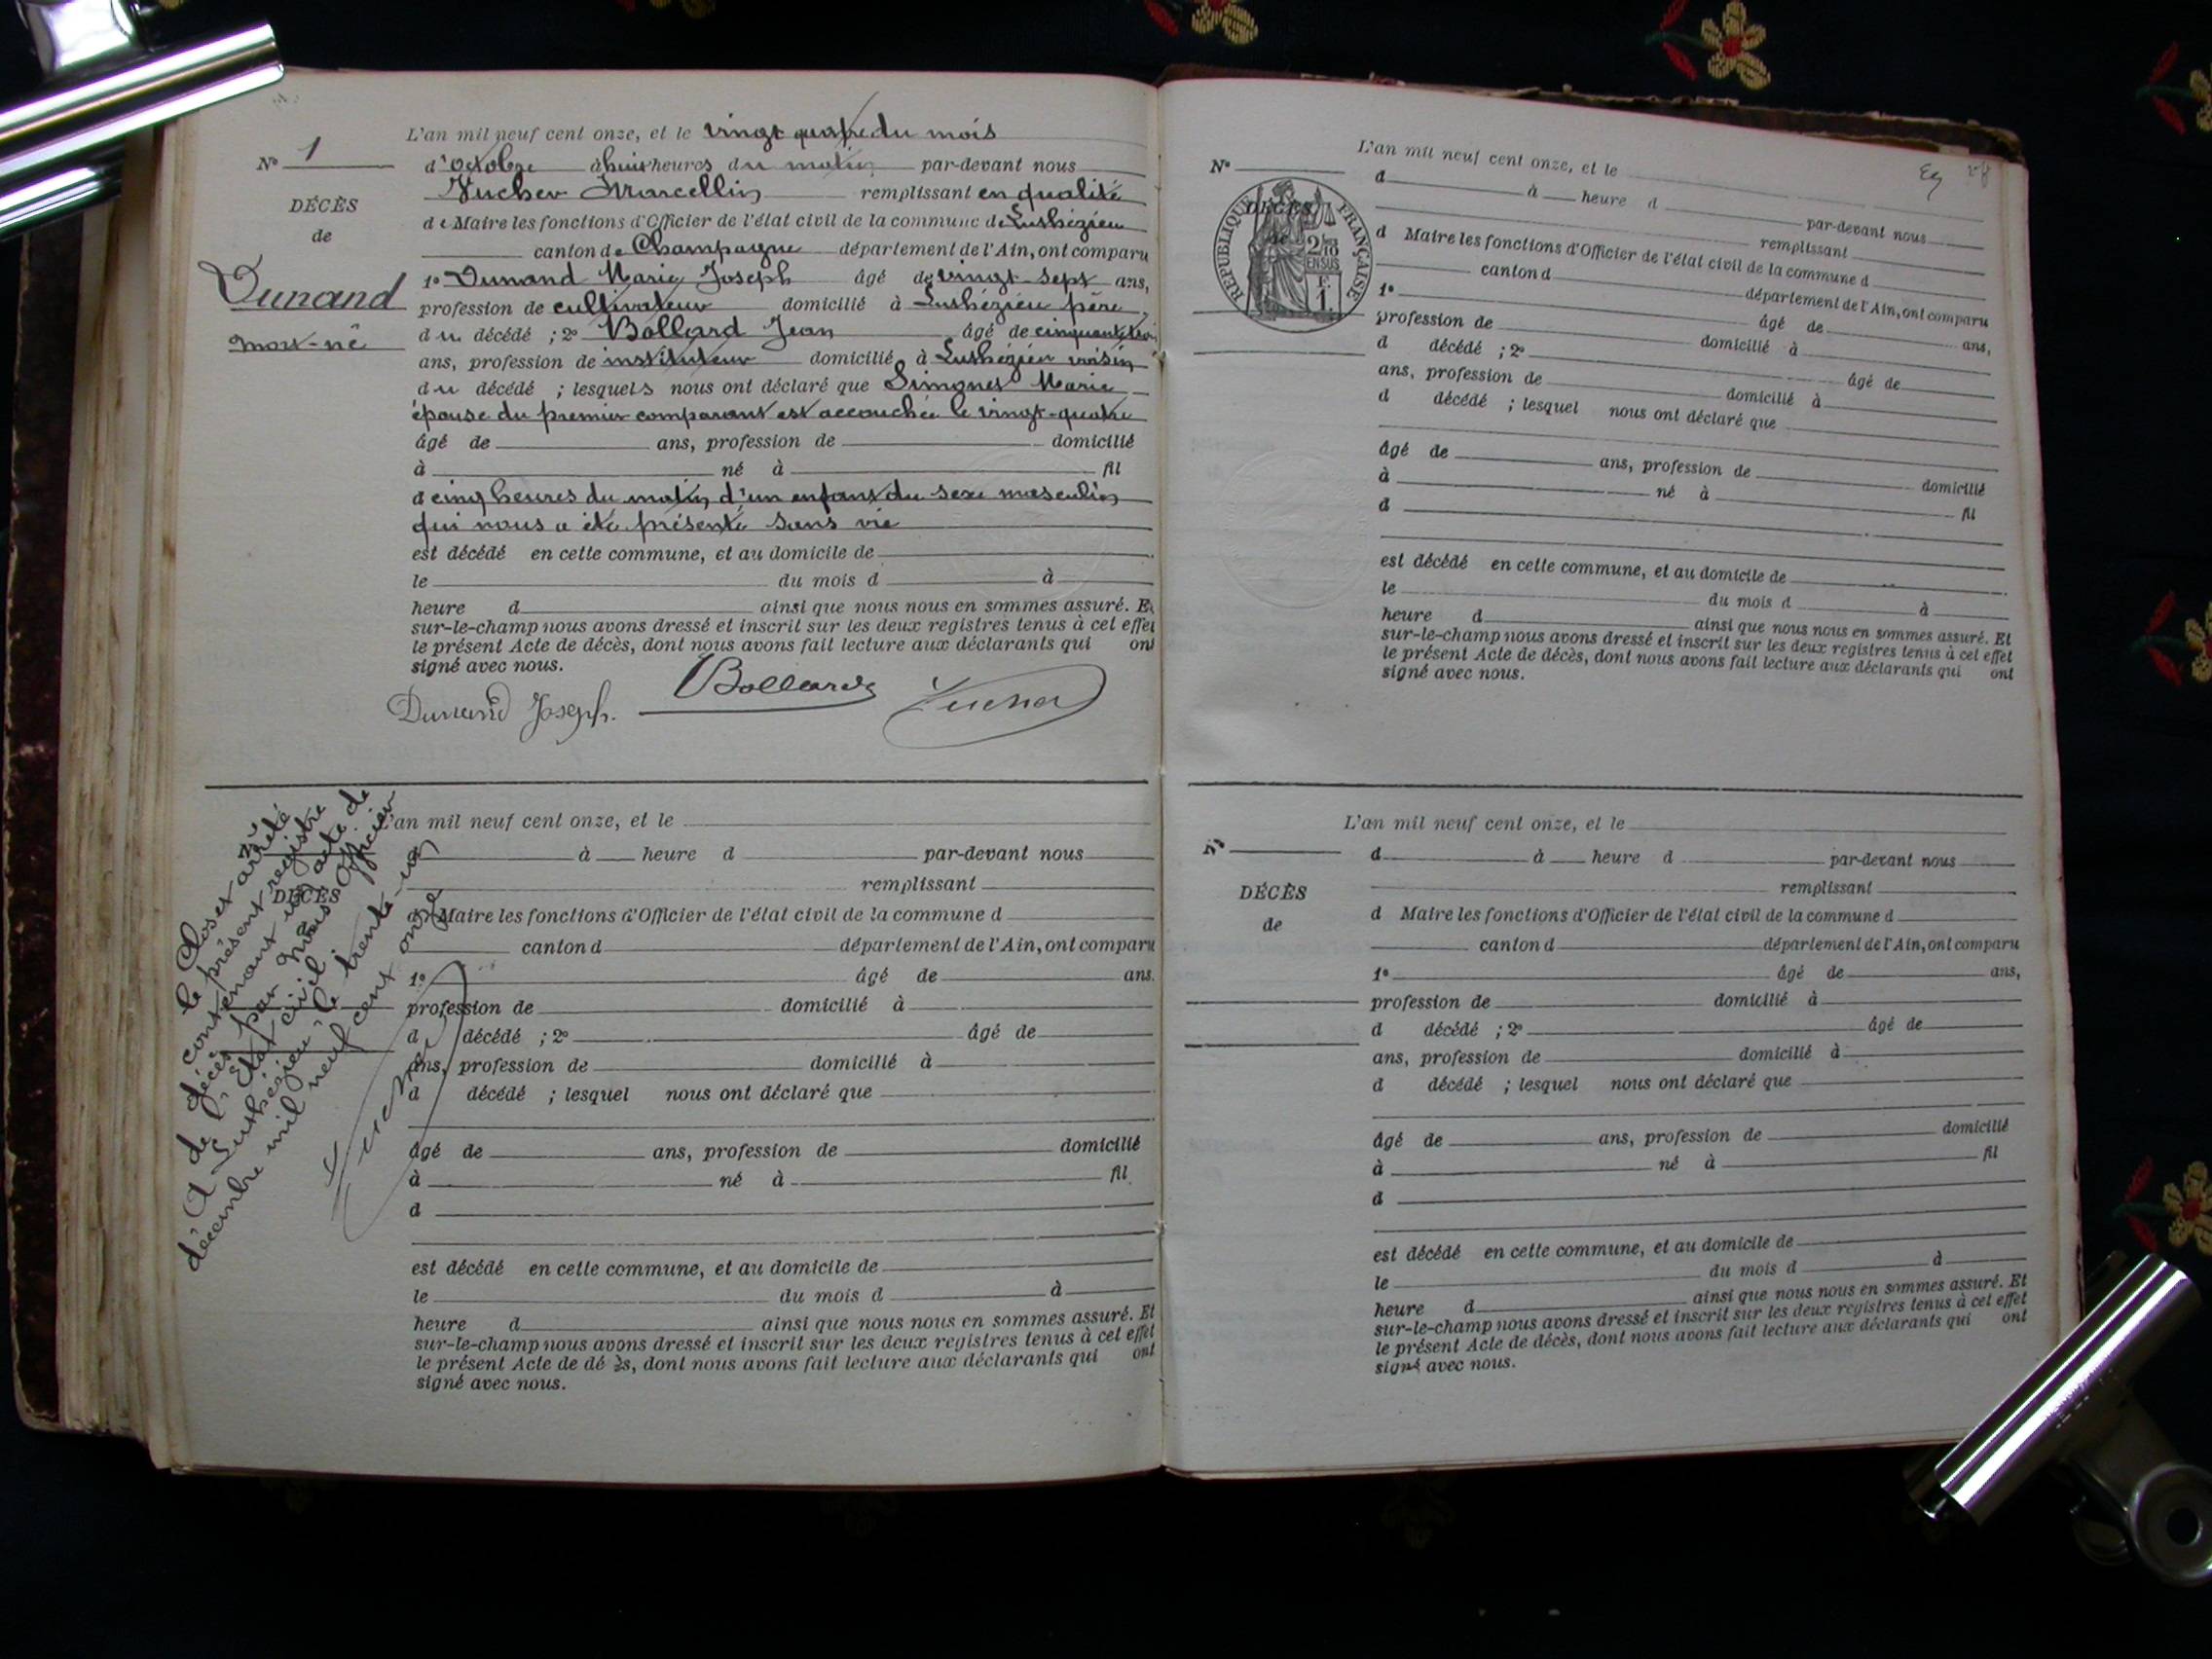 L'an mil neuf cent onze, et le vingt quatre du mois
N° 1
d'octobre à huit heures du matin par-devant nous
Marcellin remplissant en qualité
DÉCÈS
de
de Maire les fonctions d'Officier de l'état civil de la commune de Luthézieu
canton de Champagne département de l'Ain, ont comparu
Dunand
mort-né
1° Dunand Marie Joseph âgé de vingt sept ans,
profession de cultivateur domicilié à Luthézieu père
du décédé ; 2° Bollard Jean âgé de cinquante
ans, profession de instituteur domicilié à Luthézieu voisin
du décédé ; lesquels nous ont déclaré que Marie
épouse du premier comparant est accouchée le vingt-quatre
âgé de ans, profession de domicilié
à né à fil
à cinq heures du matin d'un enfant du sexe masculin
qui nous a été présenté sans vie
est décédé en cette commune, et au domicile de
le du mois d à
heure d ainsi que nous nous en sommes assuré. Et
sur-le-champ nous avons dressé et inscrit sur les deux registres tenus à cet effet
le présent Acte de décès, dont nous avons fait lecture aux déclarants qui ont
signé avec nous.
Dunand Joseph. Bollard
L'an mil neuf cent onze, et le
d à heure d par-devant nous
remplissant
DÉCÈS
d Maire les fonctions d'Officier de l'état civil de la commune d
canton d département de l'Ain, ont comparu
1° âgé de ans.
profession de domicilié à
d décédé ; 2° âgé de
ans, profession de domicilié à
d décédé ; lesquel nous ont déclaré que
âgé de ans, profession de domicilié
à né à fil
d
est décédé en cette commune, et au domicile de
le du mois d à
heure d ainsi que nous nous en sommes assuré. Et
sur-le-champ nous avons dressé et inscrit sur les deux registres tenus à cet effet
le présent Acte de dé ès, dont nous avons fait lecture aux déclarants qui ont
signé avec nous.
Clos et arrêté
le présent registre
contenant un acte de
décès par Nous Officier
de l'état civil
A Luthézieu le trente-un
décembre mil neuf cent onze
L'an mil neuf cent onze, et le
N°
d à heure d par-devant nous
remplissant
DÉCÈS
de
RÉPUBLIQUE FRANÇAISE
2/10 EN SUS
F.
1.
d Maire les fonctions d'Officier de l'état civil de la commune d
canton d département de l'Ain, ont comparu
1° âgé de ans,
profession de domicilié à
d décédé ; 2° âgé de
ans, profession de domicilié à
d décédé ; lesquel nous ont déclaré que
âgé de ans, profession de domicilié
à né à fil
d
est décédé en cette commune, et au domicile de
le du mois d à
heure d ainsi que nous nous en sommes assuré. Et
sur-le-champ nous avons dressé et inscrit sur les deux registres tenus à cet effet
le présent Acte de décès, dont nous avons fait lecture aux déclarants qui ont
signé avec nous.
L'an mil neuf cent onze, et le
N°
d à heure d par-devant nous
remplissant
DÉCÈS
de
d Maire les fonctions d'Officier de l'état civil de la commune d
canton d département de l'Ain, ont comparu
1° âgé de ans,
profession de domicilié à
d décédé ; 2° âgé de
ans, profession de domicilié à
d décédé ; lesquel nous ont déclaré que
âgé de ans, profession de domicilié
à né à fil
d
est décédé en cette commune, et au domicile de
le du mois d à
heure d ainsi que nous nous en sommes assuré. Et
sur-le-champ nous avons dressé et inscrit sur les deux registres tenus à cet effet
le présent Acte de décès, dont nous avons fait lecture aux déclarants qui ont
signé avec nous.